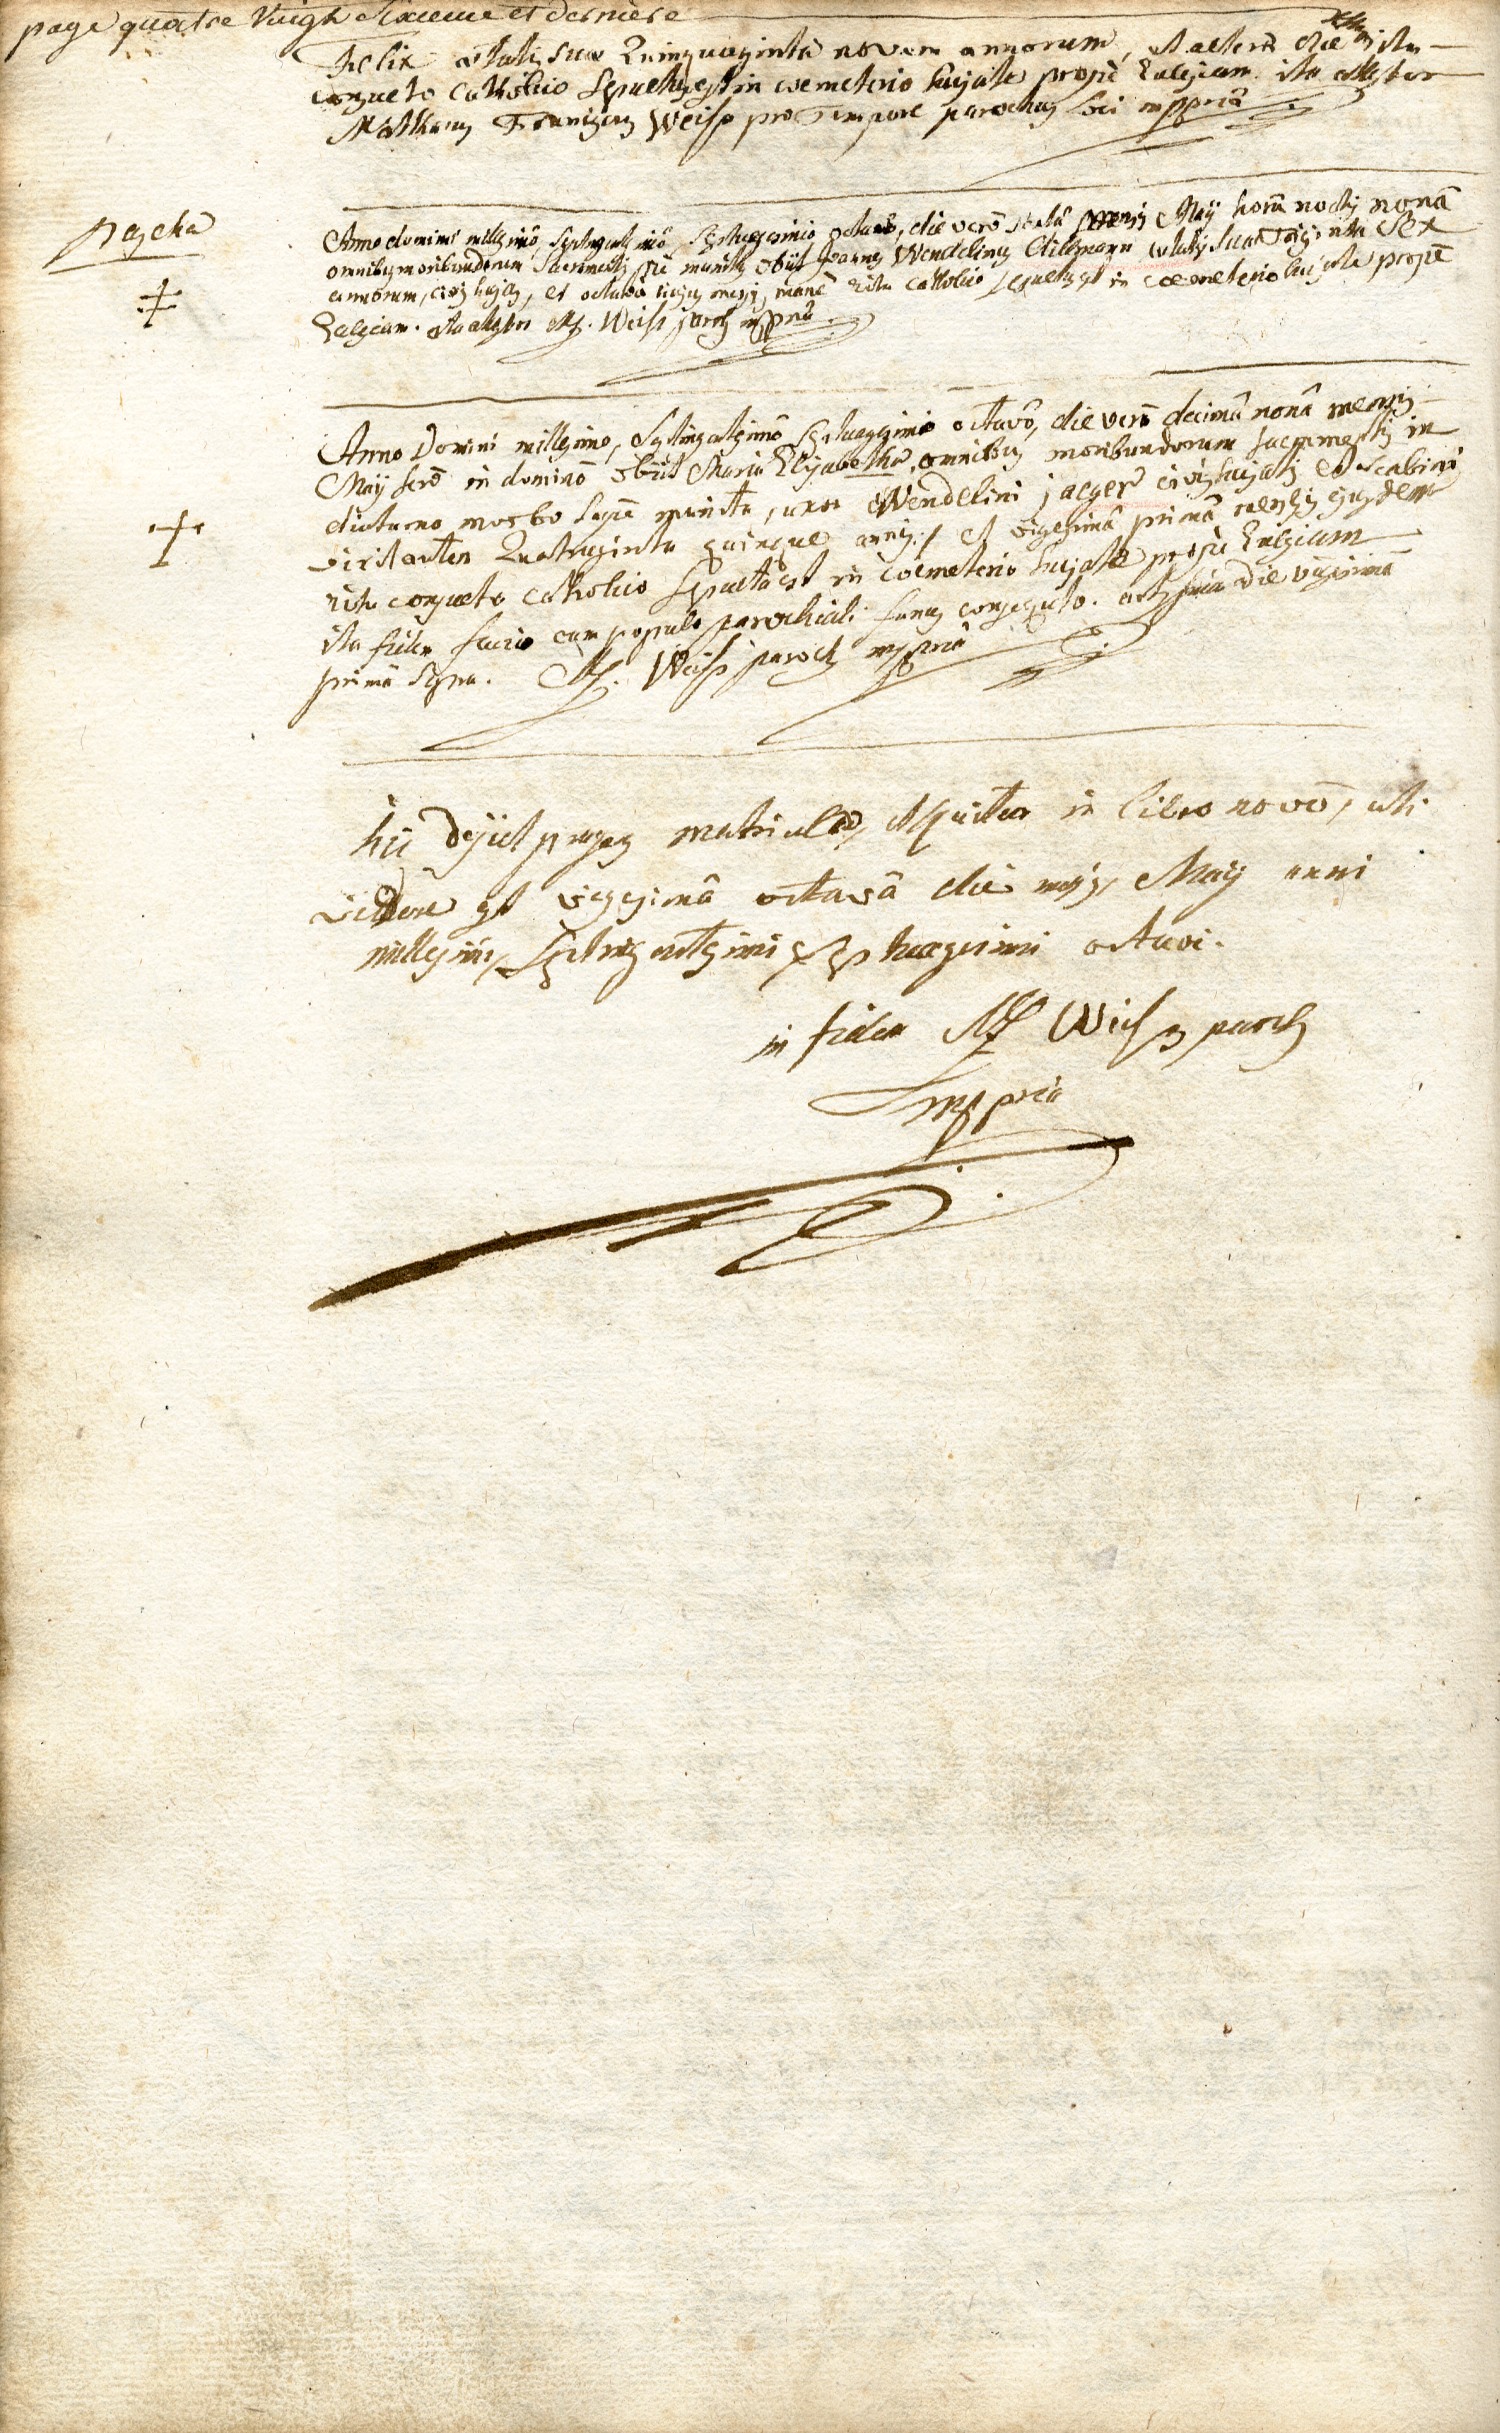 page quatre Vingt Sixieme et derniere
Felix ætatis suæ Quinquaginta novem annorum, et alterâ die ritu
consueto Catholico Sepultus est in coemeterio hujate propè Ecclesiam. ita attestor
Mathæus Franciscus Weiss pro Tempore parochus loci mppriâ
pascha
Anno domini millesimô, Septingentesimô Septuagesimo octavô, die verô sextâ mensis Maÿ horâ noctis nonâ
omnibus moribundorum Sacramentis piè munitus obiit Joannes Wendelinus Dillmann ætatis suæ Triginta Sex
annorum, civis hujas, et octavâ hujus mensis, mane ritu Catholico sepultus est in coemeterio hujate propè
Ecclesiam. ita attestor M. Weiss paroch mppriâ
Anno Domini millesimo, Septingentesimô Septuagesimo octavô, die verô decimâ nonâ mensis
Maÿ serô in dominô obiit Maria Elisabetha, omnibus moribundorum Sacramentis in
diuturno morbo sæpiè munita, uxor Wendelini jaeger civis hujatis et scabini
Quatraginta quinque annis, et vigesimâ primâ mensis ejusdem
ritu consueto catholico Sepulta est in coemeterio hujate propè Ecclesiam
ita fidem facio cum populo parochiali funus consecuto. die vigesimâ
primâ Supra. M. Weiss paroch mppriâ
hic desiit pagos matriculæ, et in libro novô, uti
videre est vigesimâ octavâ die mensis Maÿ anni
millesimi, Septingentesimi Septuagesimi octavi.
in fidem M Weiss paroch
mppriâ